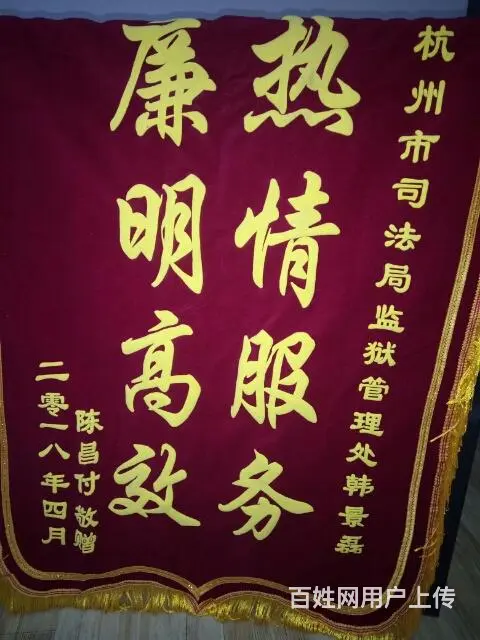 杭州市司法局监狱管理处韩景磊
热情服务
廉明高效
陈昌付敬赠
二零一八年四月
百姓网用户上传